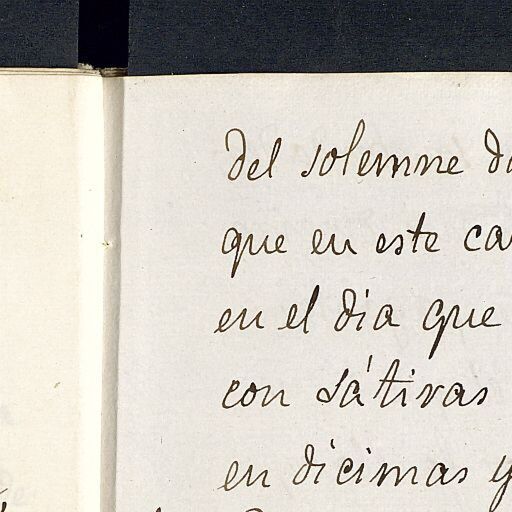 del solemne
que en este
en el dia que
con sátiras
en dicimas y